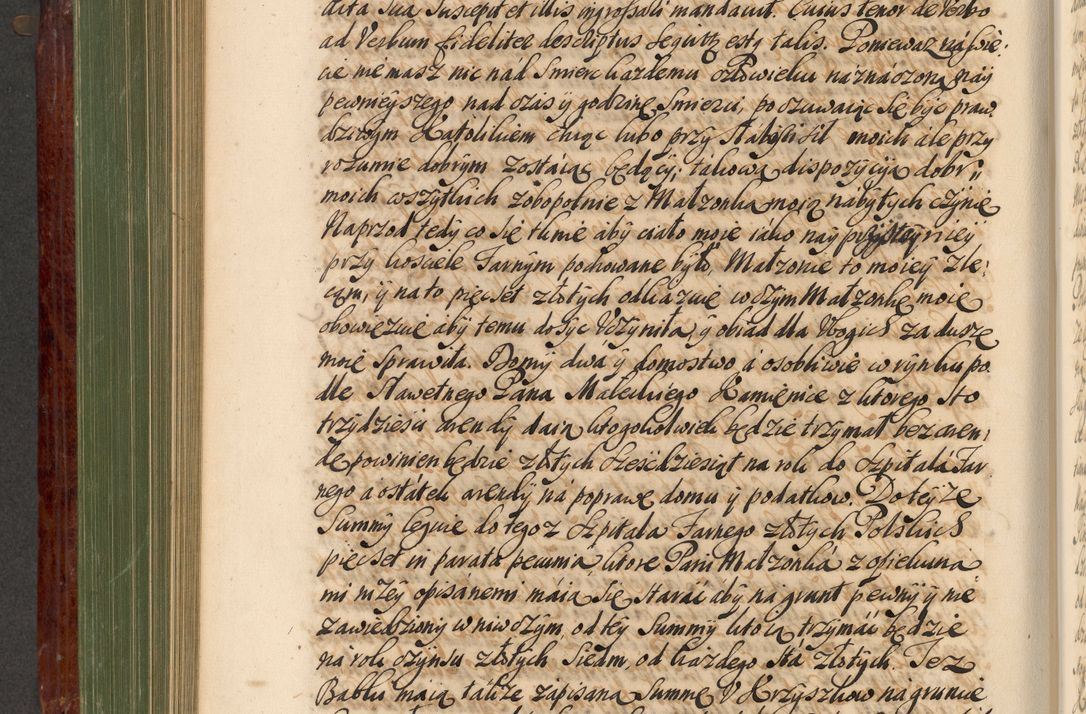 dita sua suscepit et illis ingrossari mandavit. Cuius tenor de Verbo
ad Verbum fideliter descriptus sequitr estq talis. Ponieważ na świe:
cie nie masz nic nad smierć każdemu człowieku náznáczoną, náy
pewnieyszego nad czás y godzinę smierci, poczuwaiąc się być praw
dziwym Katolikiem chcąc lubo przy słabych sił moich ale przy
rozumie dobrym zostáiąc będący, takową dispozycyią dobr
moich wszytkich zobopolnie z Małzonką moią nabytych czynię
Naprzod tedy co się tknie aby ciało moie iako nay przystoyniey
przy kosciele Farnym pochowane było, Małzonce to moiey zle:
cam, y na to pięcset złotych odkazuię w czym Małzonkę moię
obowięzuię aby temu dosyc Vczyniła y obiad dla Vbogich za duszę
moię sprawiła. Domy dwa y domostwo á osobliwie w rynku po
dle Sławetnego Pana Maleckiego Kamienicę z ktorego sto
trzydzieści arendy daią ktogokolwiek będzie trzymał bez aren:
dę powinien będzie złotych sześcdziesiąt na rok do szpitala Far
nego a ostatek arendy ná poprawę domu y podatkow. Do teyze
Summy leguię do tego z szpitala Farnego złotych Polskich
pięcset in parata pecunia ktore Pani Małzonka z opiekuna
mi nizey opisanemi máią się starác áby na grunt pewny y nie
zawiedziony w niwczym, od tey Summy ktorą trzymác będzie
na rok czynszu złotych siedm, od kazdego stá złotych. Tez
Babki máią tákze zapisana Summę V Krzyszkow na gruncie